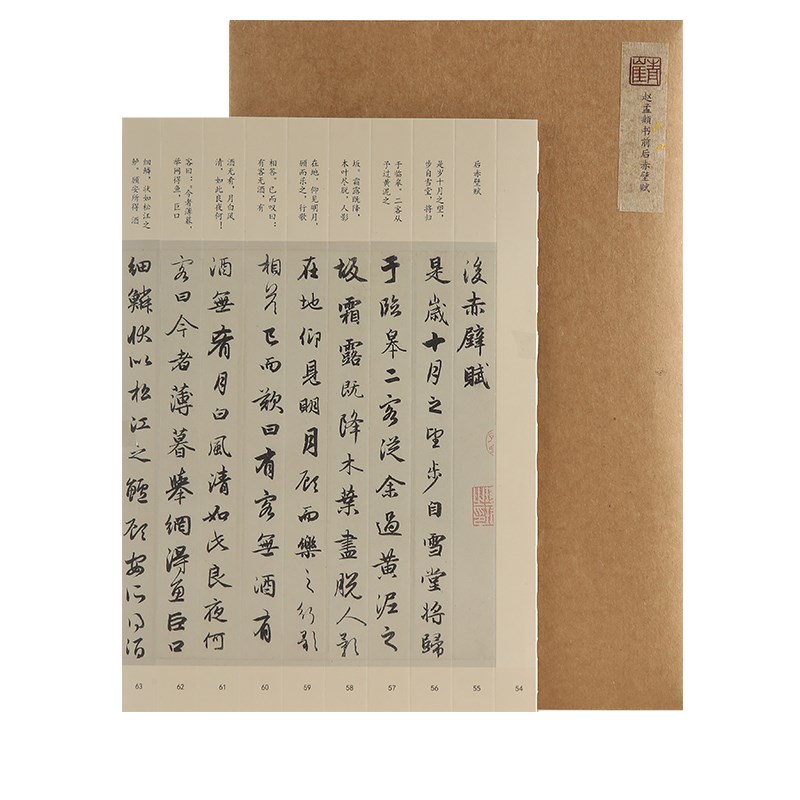 赵孟頫书前后赤壁赋
后赤壁赋
是岁十月之望，
步自雪堂，将归
于临皋。二客从
予过黄泥之
坂。霜露既降，
木叶尽脱，人影
在地，仰见明月，
顾而乐之，行歌
相答。已而叹曰：
有客无酒，有
酒无肴，月白风
清，如此良夜何！
客曰：“今者薄暮，
举网得鱼，巨口
细鳞，状如松江之
鲈，顾安所得 酒
後赤壁賦
是歲十月之望步自雪堂將歸
于臨皋二客從余過黃泥之
坂霜露既降木葉盡脫人影
在地仰見明月顧而樂之行歌
相答已而歎曰有客無酒有
酒無肴月白風清如此良夜何
客曰今者薄暮舉網得魚巨口
細鱗狀似松江之鱸顧安所得酒
63 62 61 60 59 58 57 56 55 54